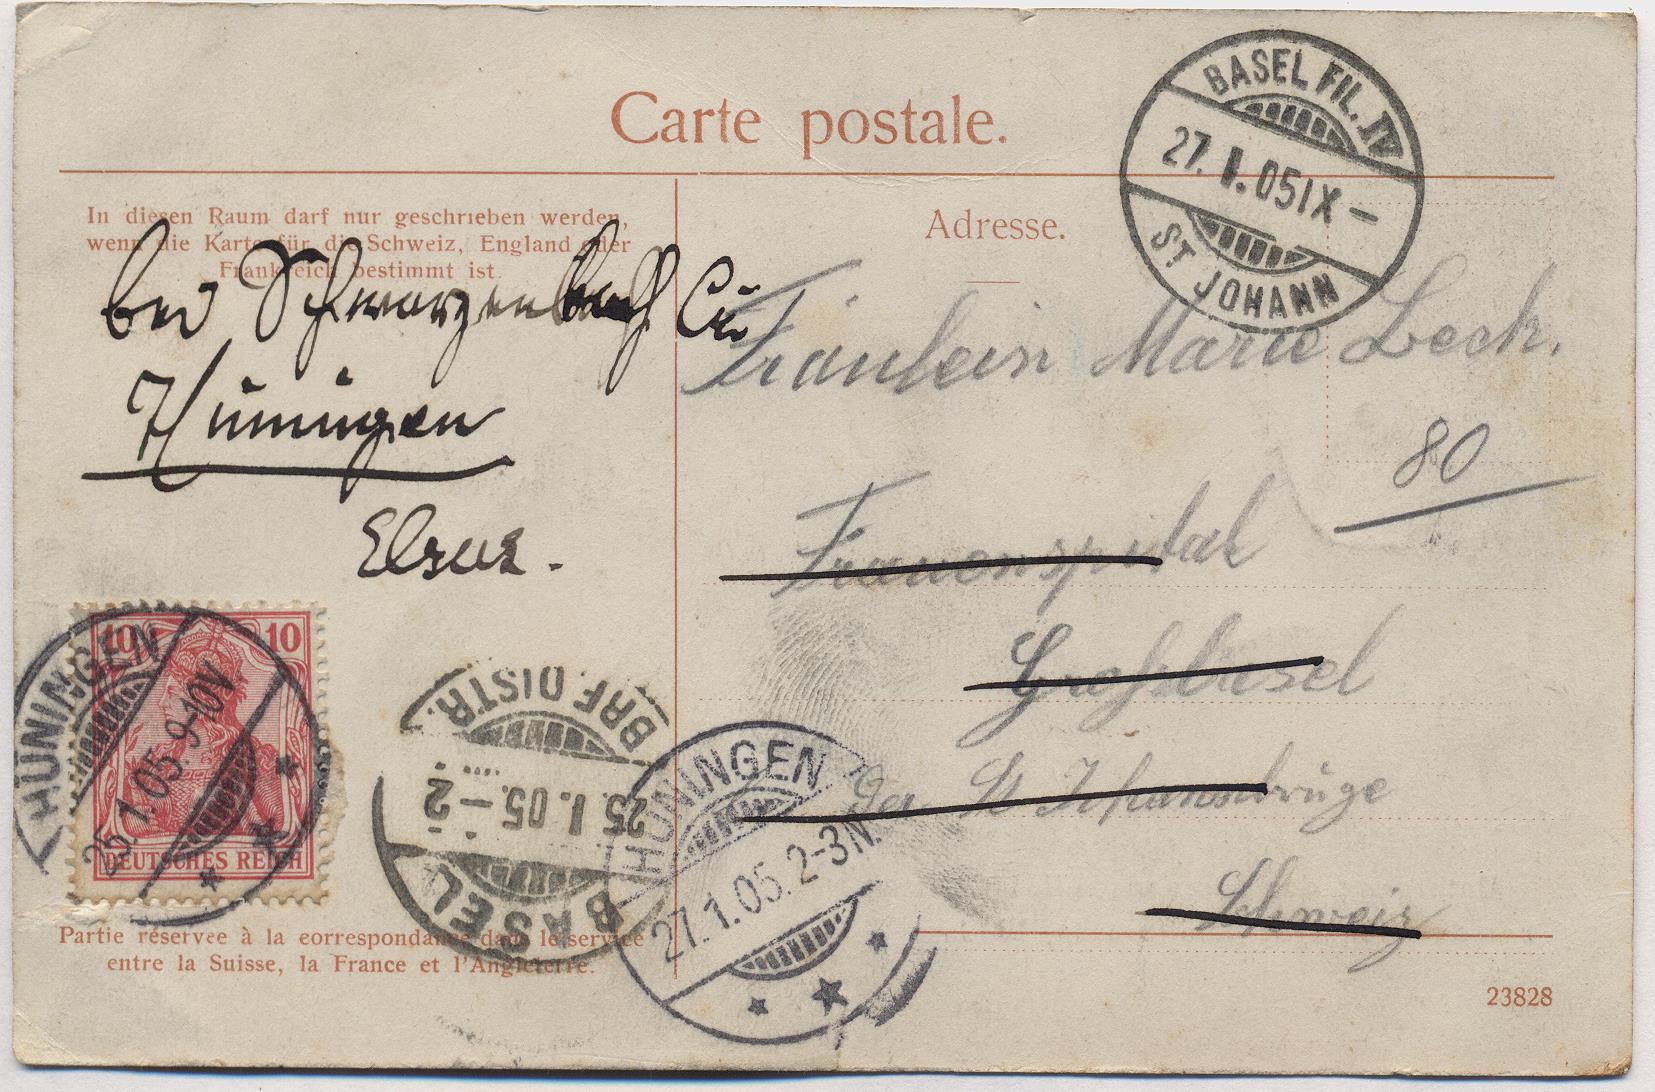 Carte postale.
In diesen Raum darf nur geschrieben werden,
wenn die Karte für die Schweiz, England oder
Frankreich bestimmt ist.
Adresse.
BASEL FIL. IV
27. I. 05 IX –
ST JOHANN
bei Schwarzenbach
Hüningen
Elsass.
Fräulein Marie Lech.
80
Frauenspital
Schweiz
10 10
DEUTSCHES REICH
HÜNINGEN
25.1.05. 9-10V
BASEL
25. I. 05. – 2
BRF. DISTR.
HÜNINGEN
27.1.05. 2-3N.
Partie réservée à la correspondance dans le service
entre la Suisse, la France et l'Angleterre.
23828